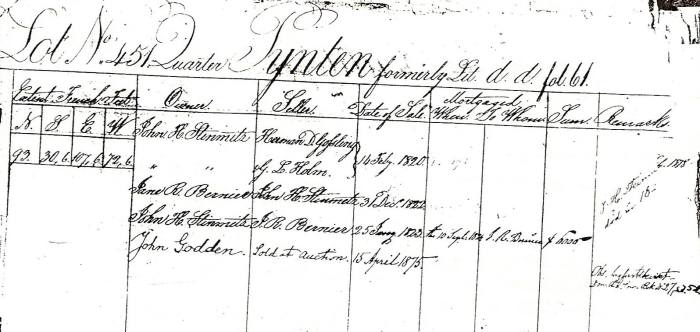 Lot No. 451 Quarter Tynten formerly Lit. d. d. fol. 61.
Extent French Feet. Owner Seller Date of Sale Mortgaged When To Whom Sum Remarks
N. S. E. W.
John H. Stinmetz Herman D. Gossling
93. 30,6. 107,6. 72,6. " " G. L. Holm. } 14 Feby. 1820.
Jane R. Bernier John H. Stinmetz 31 Decr. 1822
John H. Stinmetz J. R. Bernier 25 1823 the 10 Sept. J. R. Bernier
John Godden. Sold at auction. 15 April 1875.